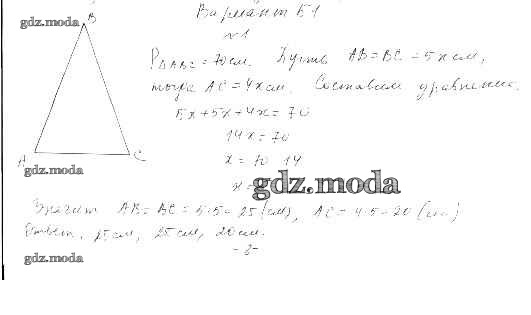 Вариант Б1
№1
B
gdz.moda
P△ABC = 70 см. Пусть AB = BC = 5x см,
тогда AC = 4x см. Составим уравнение.
5x + 5x + 4x = 70
14x = 70
A
C
x = 70 14
gdz.moda
x =
gdz.moda
Значит AB = BC = 5·5 = 25 (см), AC = 4·5 = 20 (см)
Ответ. 25 см, 25 см, 20 см.
gdz.moda